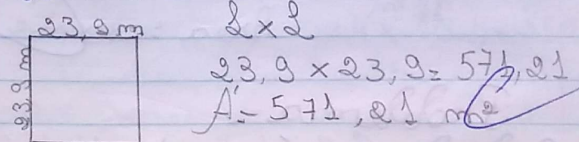 23,9 m
L × L
23,9 m
23,9 × 23,9 = 571,21
A = 571,21 m²